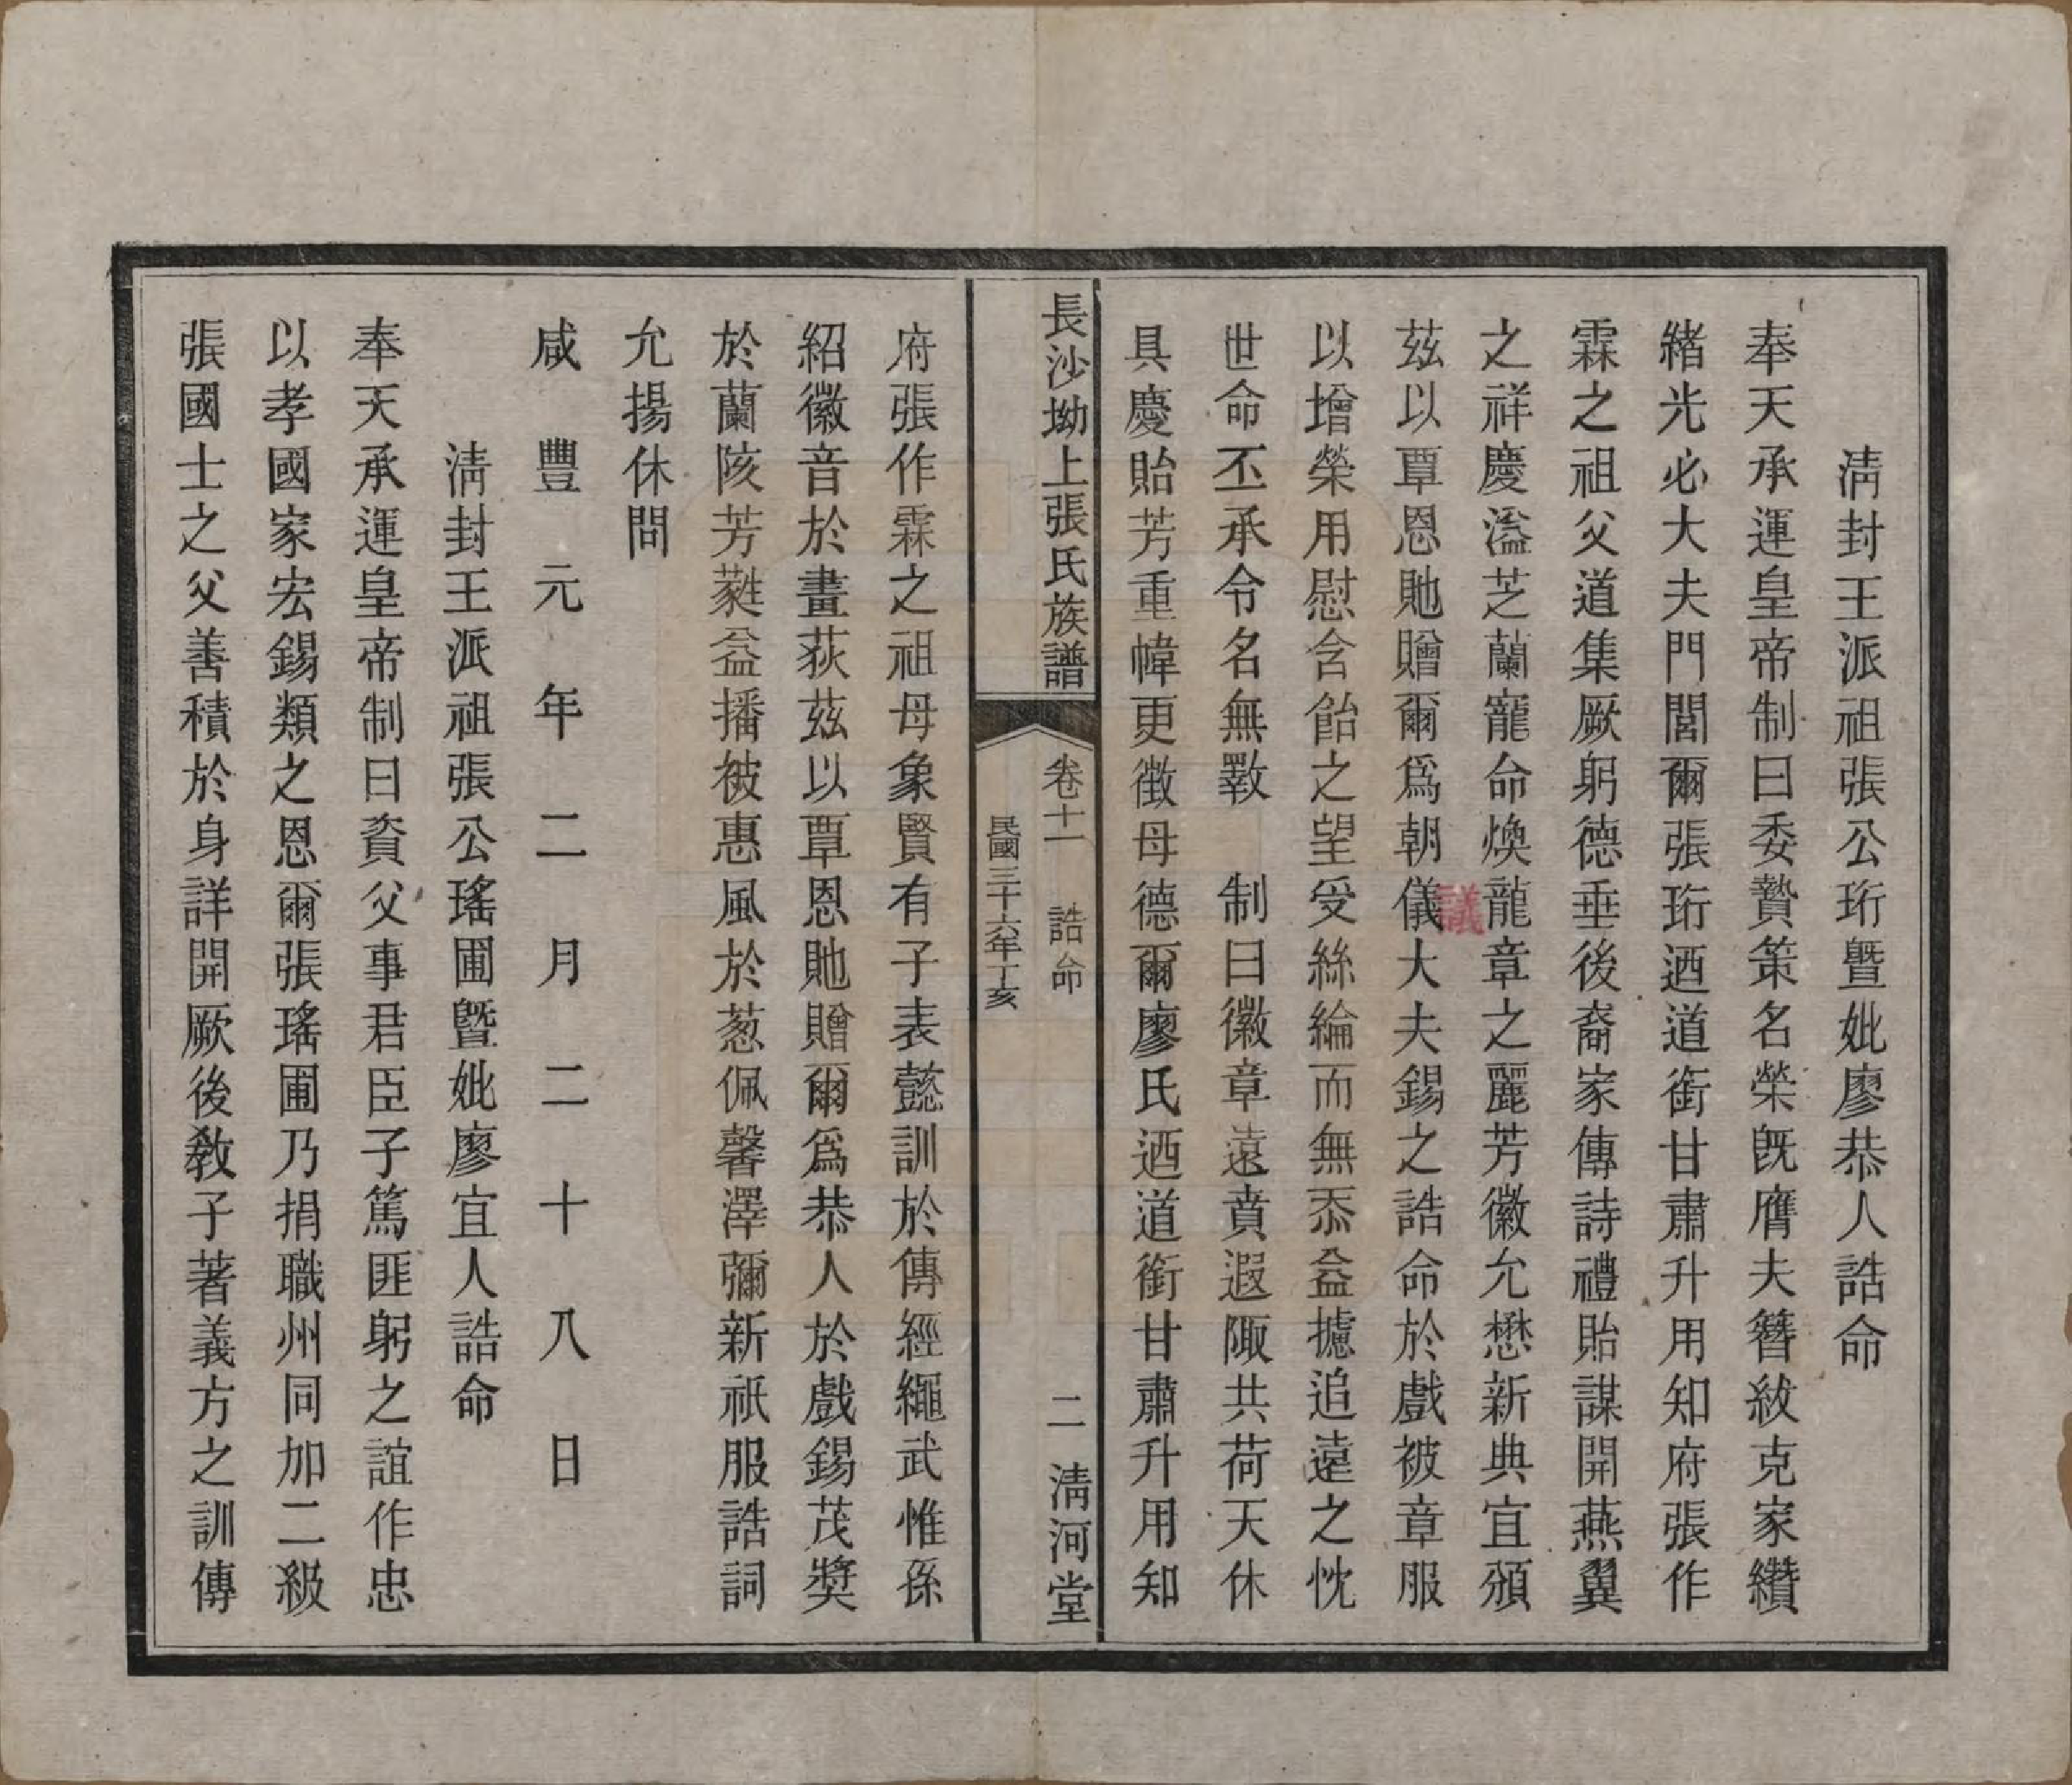 淸封王派祖張公珩暨妣廖恭人誥命
奉天承運皇帝制曰委贄策名榮旣膺夫簪紱克家纘
緒光必大夫門閭爾張珩迺道銜甘肅升用知府張作
霖之祖父道集厥躬德垂後裔家傳詩禮貽謀開燕翼
之祥慶溢芝蘭寵命煥龍章之麗芳徽允懋新典宜頒
茲以覃恩貤贈爾爲朝儀大夫錫之誥命於戲被章服
議
以增榮用慰含飴之望受絲綸而無忝益攄追遠之忱
世命丕承令名無斁　制曰徽章遠賁遐陬共荷天休
具慶貽芳重幃更徵母德爾廖氏迺道銜甘肅升用知
長沙坳上張氏族譜　卷十一　誥命　二　淸河堂
民國三十六年丁亥
府張作霖之祖母象賢有子表懿訓於傳經繩武惟孫
紹徽音於畫荻茲以覃恩貤贈爾爲恭人於戲錫茂獎
於蘭陔芳蕤益播被惠風於葱佩馨澤彌新祇服誥詞
允揚休問
咸豐元年二月二十八日
淸封王派祖張公瑤圃暨妣廖宜人誥命
奉天承運皇帝制曰資父事君臣子篤匪躬之誼作忠
以孝國家宏錫類之恩爾張瑤圃乃捐職州同加二級
張國士之父善積於身詳開厥後敎子著義方之訓傳